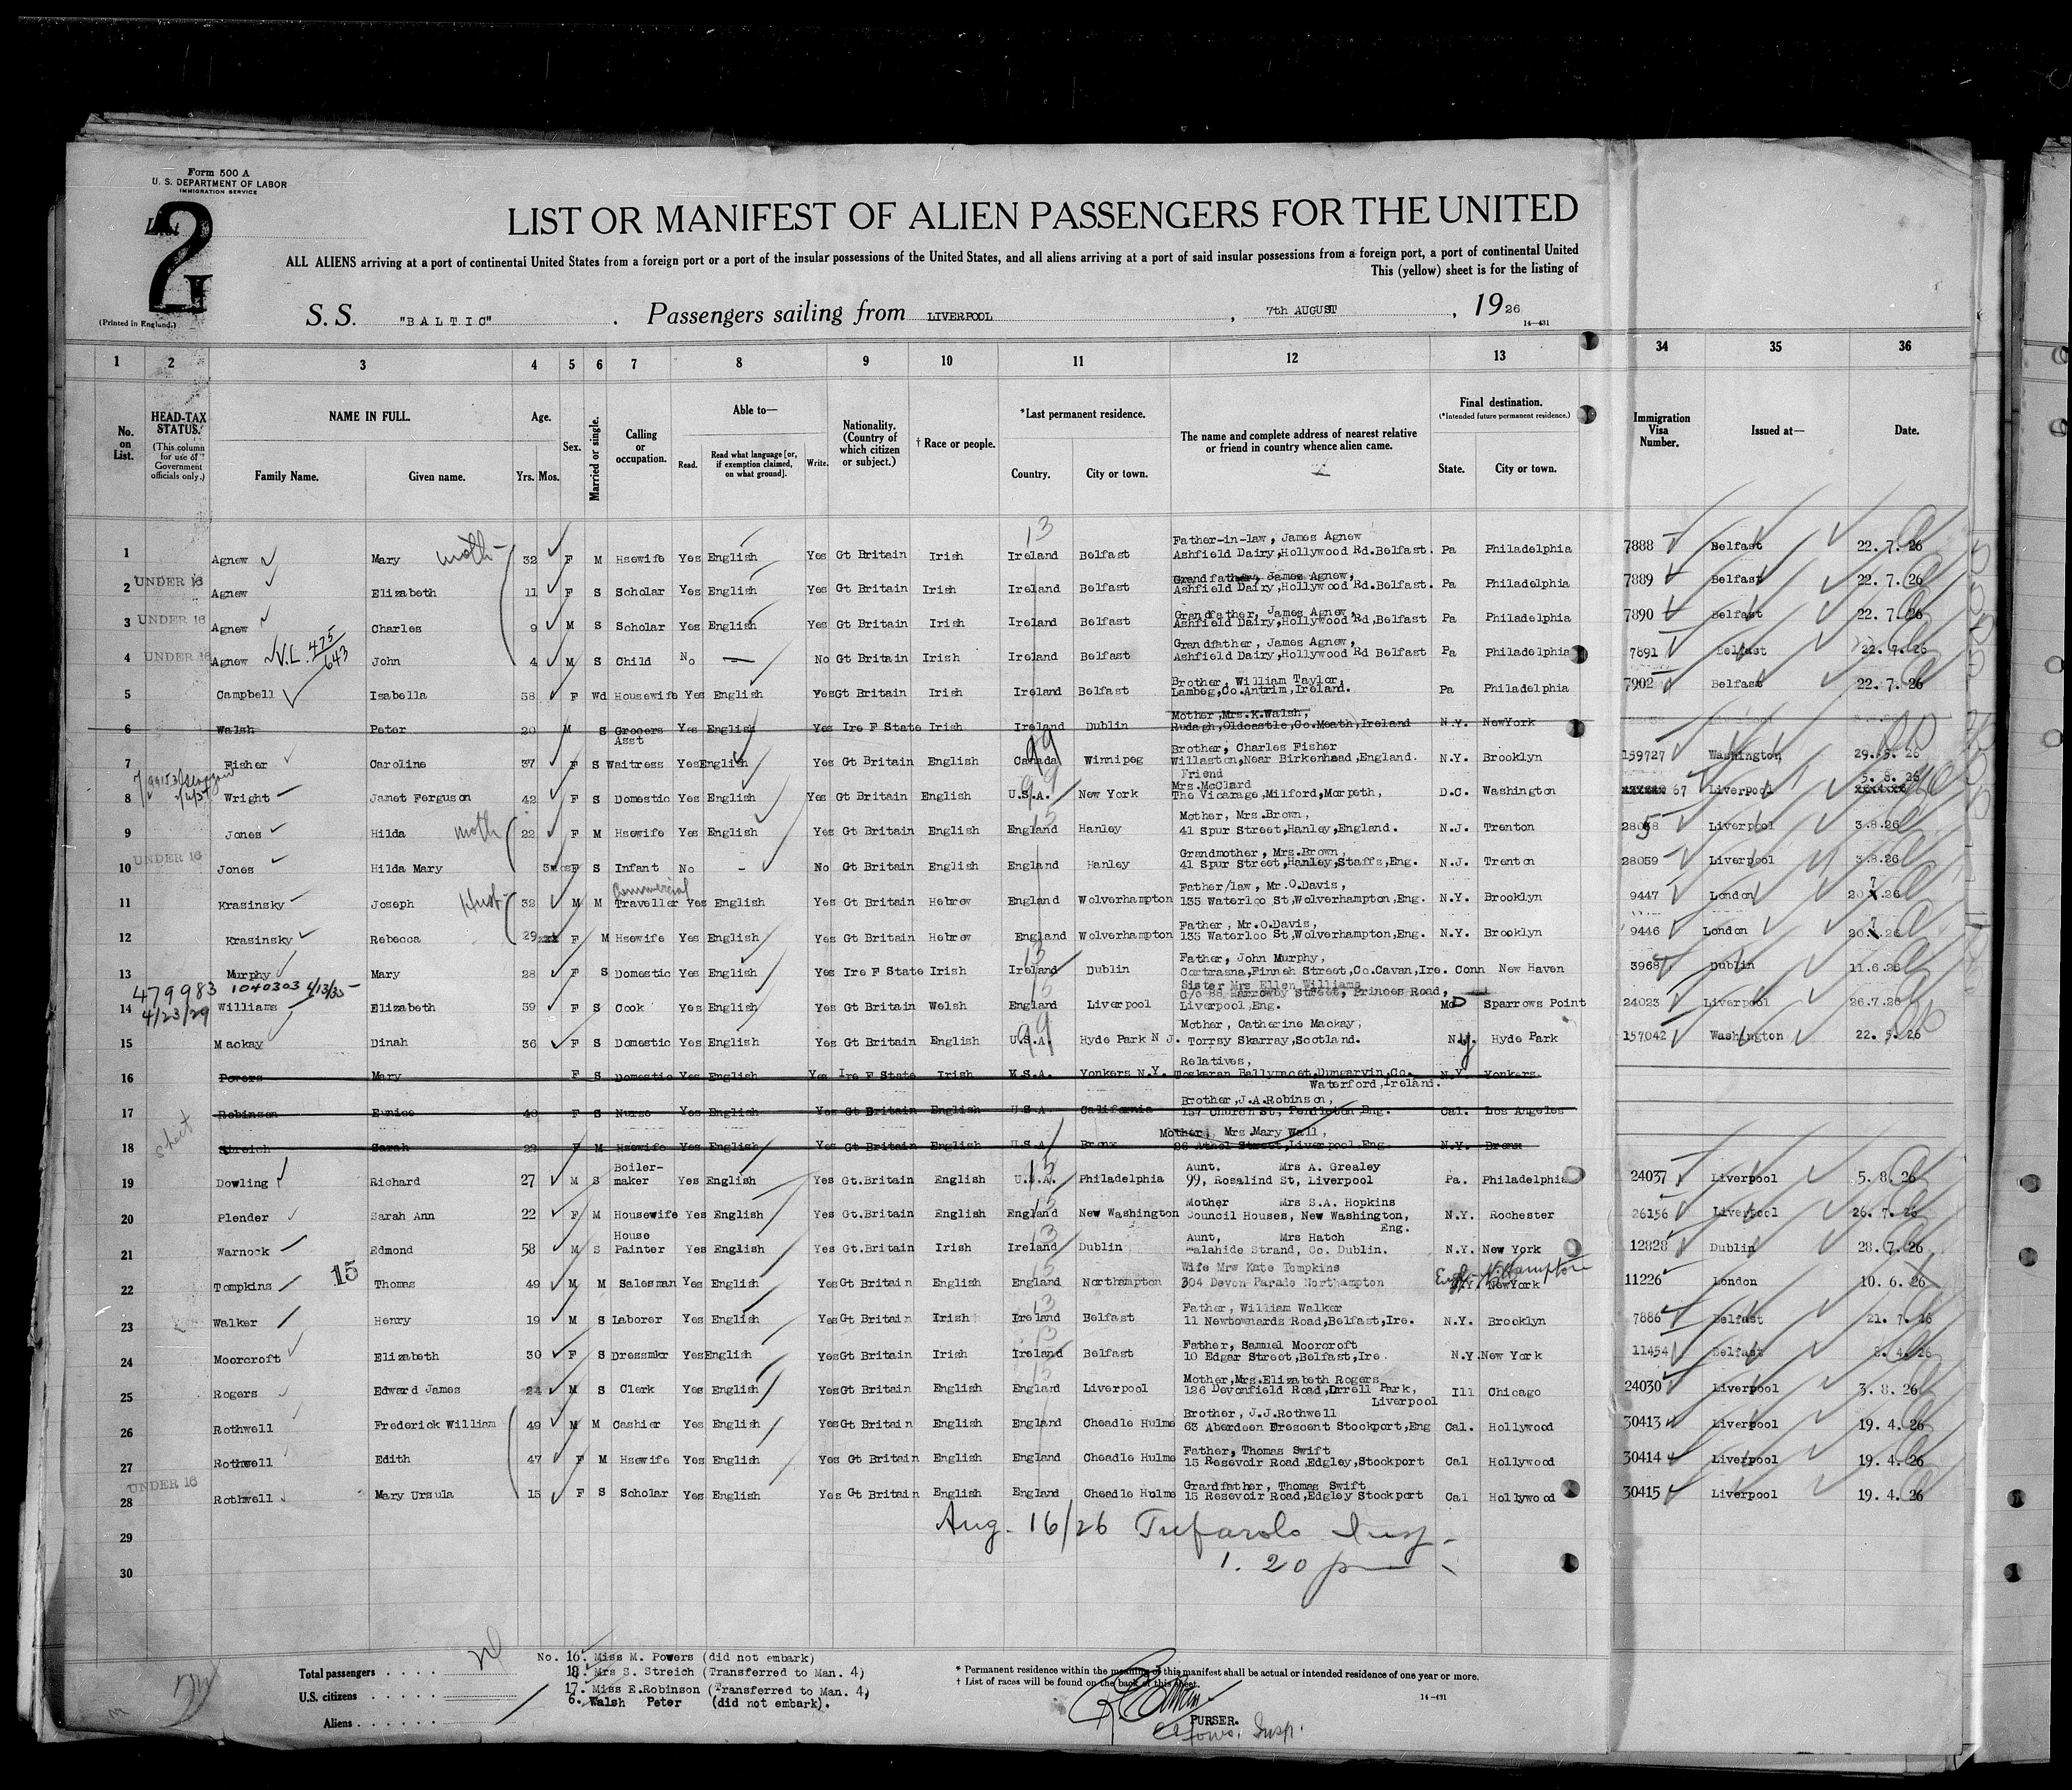 Form 500 A
U. S. DEPARTMENT OF LABOR
IMMIGRATION SERVICE
List
2
(Printed in England.)
LIST OR MANIFEST OF ALIEN PASSENGERS FOR THE UNITED
ALL ALIENS arriving at a port of continental United States from a foreign port or a port of the insular possessions of the United States, and all aliens arriving at a port of said insular possessions from a foreign port, a port of continental United
This (yellow) sheet is for the listing of
S. S. "BALTIC" . Passengers sailing from LIVERPOOL , 7th AUGUST , 1926
14—431
1 2 3 4 5 6 7 8 9 10 11 12 13 34 35 36
No. on List.
HEAD-TAX STATUS. (This column for use of Government officials only.)
NAME IN FULL. Family Name. Given name.
Age. Yrs. Mos.
Sex.
Married or single.
Calling or occupation.
Able to— Read. Read what language [or, if exemption claimed, on what ground]. Write.
Nationality. (Country of which citizen or subject.)
† Race or people.
*Last permanent residence. Country. City or town.
The name and complete address of nearest relative or friend in country whence alien came.
Final destination. (*Intended future permanent residence.) State. City or town.
Immigration Visa Number. Issued at— Date.
1 Agnew Mary moth- 32 F M Hsewife Yes English Yes Gt Britain Irish 13 Ireland Belfast Father-in-law, James Agnew Ashfield Dairy,Hollywood Rd.Belfast. Pa Philadelphia 7888 Belfast 22. 7. 26
2 UNDER 16 Agnew Elizabeth 11 F S Scholar Yes English Yes Gt Britain Irish Ireland Belfast Grandfather, James Agnew, Ashfield Dairy,Hollywood Rd.Belfast. Pa Philadelphia 7889 Belfast 22. 7. 26
3 UNDER 16 Agnew Charles 9 M S Scholar Yes English Yes Gt Britain Irish Ireland Belfast Grandfather, James Agnew, Ashfield Dairy,Hollywood Rd,Belfast Pa Philadelphia 7890 Belfast 22. 7.26
4 UNDER 16 Agnew V.L. 475/643 John 4 M S Child No — No Gt Britain Irish Ireland Belfast Grandfather, James Agnew, Ashfield Dairy,Hollywood Rd Belfast Pa Philadelphia 7891 Belfast 22. 7.26
5 Campbell Isabella 38 F Wd Housewife Yes English Yes Gt Britain Irish Ireland Belfast Brother, William Taylor, Lambeg,Co.Antrim,Ireland. Pa Philadelphia 7902 Belfast 22. 7.26
6 Walsh Peter 20 M S Grocers Asst Yes English Yes Ire F State Irish Ireland Dublin Mother,Mrs.K.Walsh, Rudagh,Oldcastle,Co.Meath,Ireland N.Y. NewYork
7 Fisher Caroline 37 F S Waitress Yes English Yes Gt Britain English 99 Canada Winnipeg Brother, Charles Fisher Willaston,Near Birkenhead,England. N.Y. Brooklyn 159727 Washington 29. 5. 26
8 Wright Janet Ferguson 42 F S Domestic Yes English Yes Gt Britain English 99 U.S.A. New York Friend Mrs.McClard The Vicarage,Milford,Morpeth, D.C. Washington 67 Liverpool 5. 8. 26
9 Jones Hilda moth 22 F M Hsewife Yes English Yes Gt Britain English 15 England Hanley Mother, Mrs.Brown, 41 Spur Street,Hanley,England. N.J. Trenton 28058 Liverpool 3.8.26
10 UNDER 16 Jones Hilda Mary 3mos F S Infant No - No Gt Britain English England Hanley Grandmother, Mrs.Brown, 41 Spur Street,Hanley,Staffs,Eng. N.J. Trenton 28059 Liverpool 3.8.26
11 Krasinsky Joseph Husb- 32 M M Commercial Traveller Yes English Yes Gt Britain Hebrew England Wolverhampton Father/law, Mr.O.Davis, 135 Waterloo St,Wolverhampton,Eng. N.Y. Brooklyn 9447 London 20.7.26
12 Krasinsky Rebecca 29 F M Hsewife Yes English Yes Gt Britain Hebrew England Wolverhampton Father, Mr.O.Davis, 135 Waterloo St,Wolverhampton,Eng. N.Y. Brooklyn 9446 London 20.7.26
13 Murphy Mary 28 F S Domestic Yes English Yes Ire F State Irish 13 Ireland Dublin Father, John Murphy, Cortrasna,Finneh Street,Co.Cavan,Ire. Conn New Haven 3968 Dublin 11.6.26
479983 1040303 4/13/35
14 4/23/29 Williams Elizabeth 39 F S Cook Yes English Yes Gt Britain Welsh 15 England Liverpool Sister Mrs Ellen Williams c/o 88 Harrowby Street, Princes Road, Liverpool,Eng. Md Sparrows Point 24023 Liverpool 26.7.26
15 Mackay Dinah 36 F S Domestic Yes English Yes Gt Britain English 99 U.S.A. Hyde Park N J. Mother, Catherine Mackay, Torrsy Skarray,Scotland. N.y. Hyde Park 157042 Washington 22. 5. 26
16 Powers Mary F S Domestic Yes English Yes Ire F State Irish U.S.A. Yonkers N.Y. Relatives, Toskeran Ballymacet,Dungarvin,Co. Waterford,Ireland. N.Y. Yonkers
17 Robinson Eunice 40 F S Nurse Yes English Yes Gt Britain English U.S.A. California Brother,J.A.Robinson, 157 Church St, Pendleton,Eng. Cal. Los Angeles
18 Streich Sarah 29 F M Hsewife Yes English Yes Gt Britain English U.S.A. Bronx Mother, Mrs.Mary Wall, 26 Athol Street,Liverpool,Eng. N.Y. Bronx
19 Dowling Richard 27 M S Boiler-maker Yes English Yes Gt.Britain English 15 U.S.A. Philadelphia Aunt. Mrs A. Grealey 99, Rosalind St, Liverpool Pa. Philadelphia 24037 Liverpool 5. 8. 26
20 Plender Sarah Ann 22 F M Housewife Yes English Yes Gt.Britain English 15 England New Washington Mother Mrs S.A. Hopkins Council Houses, New Washington, Eng. N.Y. Rochester 26156 Liverpool 26. 7. 26
21 Warnock Edmond 58 M S House Painter Yes English Yes Gt.Britain Irish 13 Ireland Dublin Aunt, Mrs Hatch Malahide Strand, Co. Dublin. N.Y. New York 12828 Dublin 28. 7. 26
22 Tompkins 15 Thomas 49 M M Salesman Yes English Yes Gt Britain English 15 England Northampton Wife Mrw Kate Tompkins 304 Devon Parade Northampton Eng. N.Hampton N.Y NewYork 11226 London 10. 6. 26
23 Walker Henry 19 M S Laborer Yes English Yes Gt Britain Irish 13 Ireland Belfast Father, William Walker 11 Newtownards Road,Belfast,Ire. N.Y. Brooklyn 7886 Belfast 21. 7. 26
24 Moorcroft Elizabeth 30 F S Dressmkr Yes English Yes Gt Britain Irish 13 Ireland Belfast Father, Samuel Moorcroft 10 Edgar Street,Belfast,Ire. N.Y. New York 11454 Belfast 8. 4. 26
25 Rogers Edward James 24 M S Clerk Yes English Yes Gt Britain English 15 England Liverpool Mother,Mrs.Elizabeth Rogers 126 Devonfield Road,Orrell Park, Liverpool Ill Chicago 24030 Liverpool 3. 8. 26
26 Rothwell Frederick William 49 M M Cashier Yes English Yes Gt Britain English England Cheadle Hulme Brother, J.J.Rothwell 63 Aberdeen Crescent Stockport,Eng Cal. Hollywood 30413 Liverpool 19. 4. 26
27 Rothwell Edith 47 F M Hsewife Yes English Yes Gt Britain English England Cheadle Hulme Father, Thomas Swift 15 Resevoir Road,Edgley,Stockport Cal Hollywood 30414 Liverpool 19. 4. 26
28 UNDER 16 Rothwell Mary Ursula 15 F S Scholar Yes English Yes Gt Britain English England Cheadle Hulme Grandfather, Thomas Swift 15 Resevoir Road,Edgley Stockport Cal Hollywood 30415 Liverpool 19. 4. 26
29 Aug. 16/26 Tufarolo Insp-
30 1. 20 pm
Total passengers . . . .
U.S. citizens . . . . .
Aliens . . . . . .
No. 16. Miss M. Powers (did not embark)
18. Mrs S. Streich (Transferred to Man. 4)
17. Miss E.Robinson (Transferred to Man. 4)
6. Walsh Peter (did not embark).
* Permanent residence within the meaning of this manifest shall be actual or intended residence of one year or more.
† List of races will be found on the back of this sheet.
14—431
PURSER.
Insp.